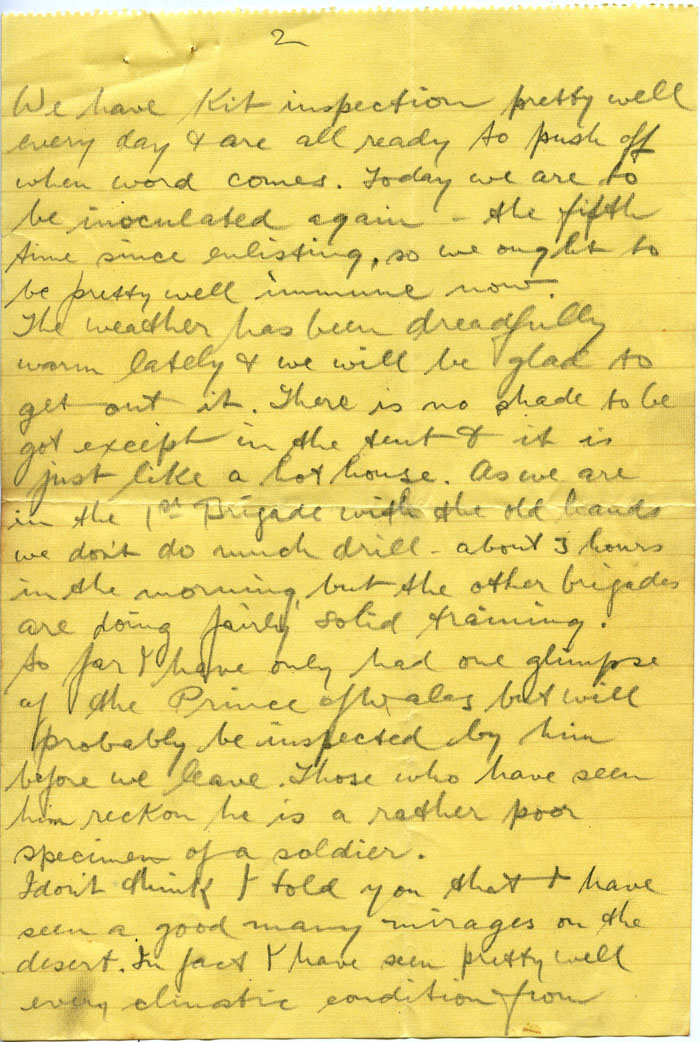 2
We have Kit inspection pretty well
every day & are all ready to push off
when word comes. Today we are to
be inoculated again - the fifth
time since enlisting, so we ought to
be pretty well immune now.
The weather has been dreadfully
warm lately & we will be glad to
get out it. There is no shade to be
got except in the tent & it is
just like a hot house. As we are
in the 1st Brigade with the old hands
we don't do much drill - about 3 hours
in the morning, but the other brigades
are doing fairly solid training.
So far I have only had one glimpse
of the Prince of Wales but will
probably be inspected by him
before we leave. Those who have seen
him reckon he is a rather poor
specimen of a soldier.
I don't think I told you that I have
seen a good many mirages on the
desert. In fact I have seen pretty well
every climatic condition from